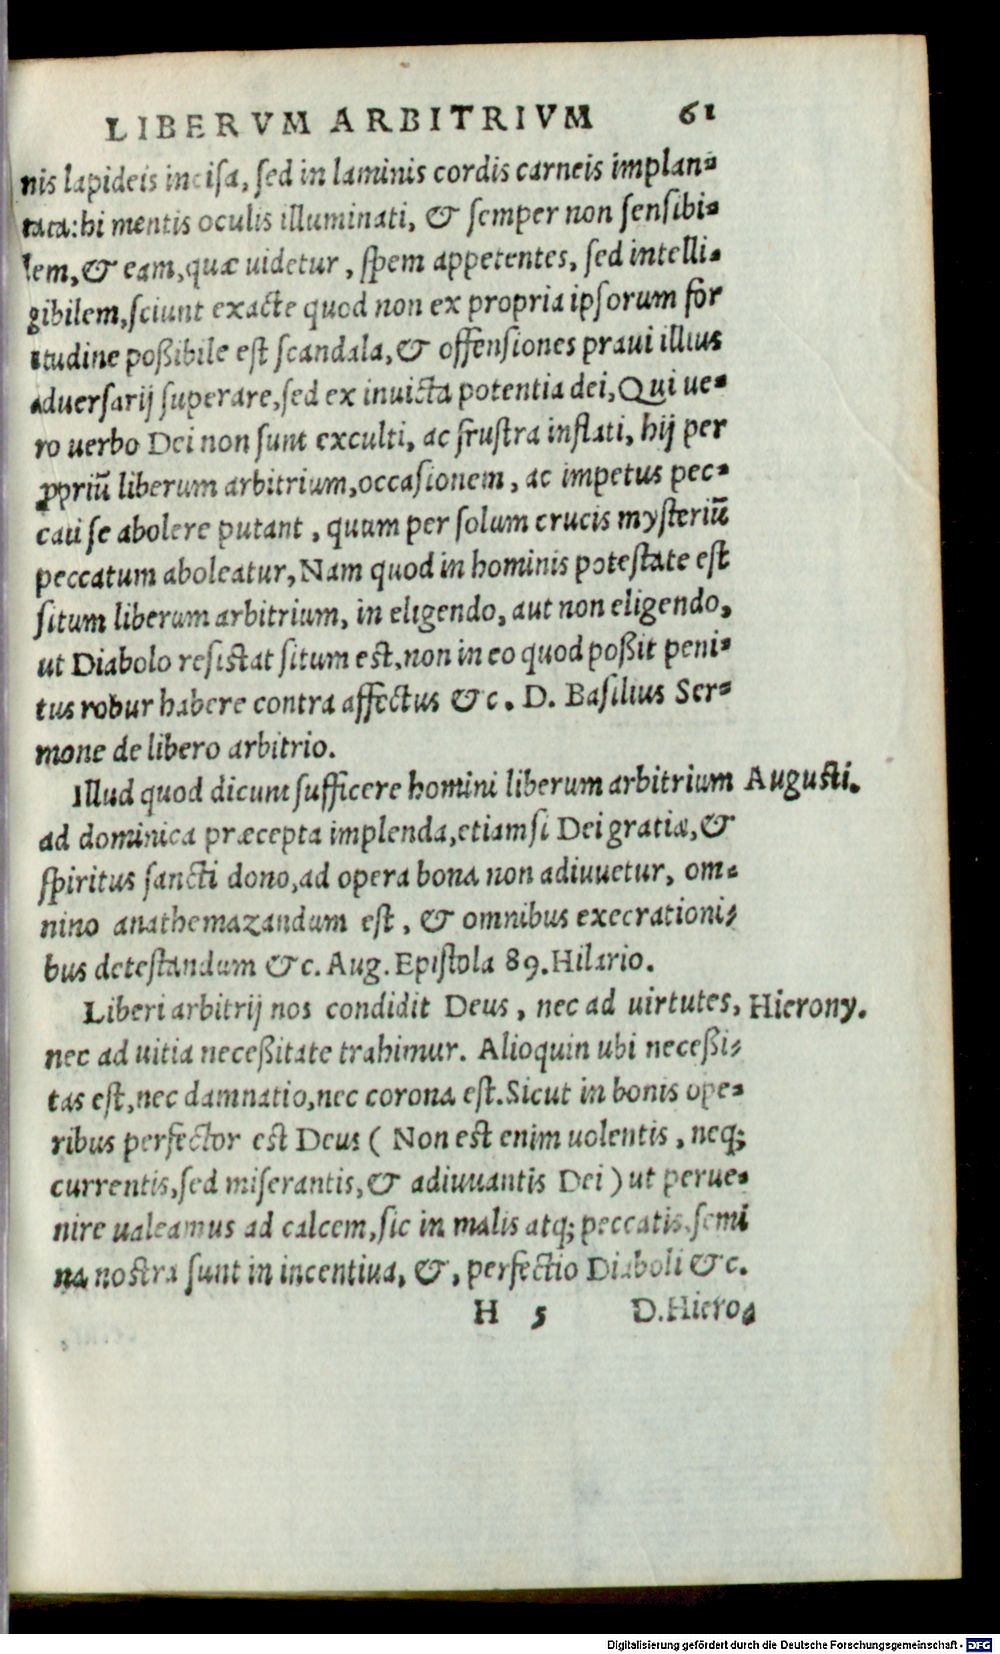 LIBERVM ARBITRIVM 61
nis lapideis incisa, sed in laminis cordis carneis implan-
tata: hi mentis oculis illuminati, & semper non sensibi-
lem, & eam, quæ uidetur, spem appetentes, sed intelli-
gibilem, sciunt exacte quod non ex propria ipsorum for
titudine poßibile est scandala, & offensiones praui illius
aduersarij superare, sed ex inuicta potentia dei, Qui ue-
ro uerbo Dei non sunt exculti, ac frustra inflati, hij per
ꝓpriũ liberum arbitrium, occasionem, ac impetus pec-
cati se abolere putant, quum per solum crucis mysteriũ
peccatum aboleatur, Nam quod in hominis potestate est
situm liberum arbitrium, in eligendo, aut non eligendo,
ut Diabolo resistat situm est, non in eo quod poßit peni-
tus robur habere contra affectus &c. D. Basilius Ser-
mone de libero arbitrio.
Illud quod dicunt sufficere homini liberum arbitrium Augusti.
ad dominica præcepta implenda, etiamsi Dei gratiæ, &
spiritus sancti dono, ad opera bona non adiuuetur, om-
nino anathemazandum est, & omnibus execrationi-
bus detestandum &c. Aug. Epistola 89. Hilario.
Liberi arbitrij nos condidit Deus, nec ad uirtutes, Hierony.
nec ad uitia neceßitate trahimur. Alioquin ubi neceßi-
tas est, nec damnatio, nec corona est. Sicut in bonis ope-
ribus perfector est Deus ( Non est enim uolentis, neq;
currentis, sed miserantis, & adiuuantis Dei ) ut perue-
nire ualeamus ad calcem, sic in malis atq; peccatis, semi
na nostra sunt in incentiua, &, perfectio Diaboli &c.
H 5 D. Hiero-
Digitalisierung gefördert durch die Deutsche Forschungsgemeinschaft - DFG